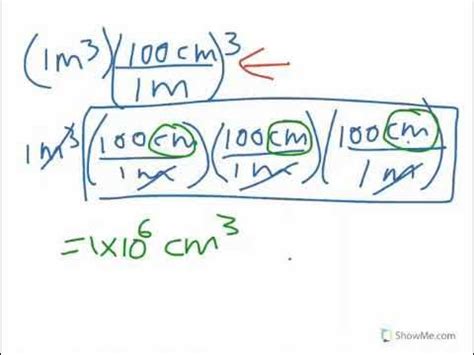 (1m³)(100cm/1m)³
1m³(100cm/1m)(100cm/1m)(100cm/1m)
=1x10⁶ cm³
ShowMe.com